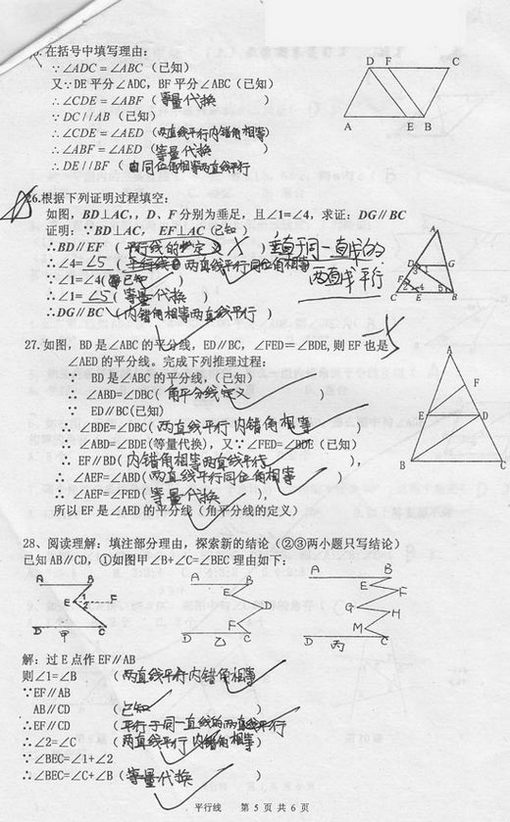 在括号中填写理由:
∵∠ADC=∠ABC(已知)
又∵DE平分∠ADC,BF平分∠ABC(已知)
∴∠CDE=∠ABF(等量代换)
∵DC//AB(已知)
∴∠CDE=∠AED(两直线平行内错角相等)
∴∠ABF=∠AED(等量代换)
∴DE//BF(由同位角相等两直线平行
D F C
A E B
26.根据下列证明过程填空:
如图,BD⊥AC,,D、F分别为垂足,且∠1=∠4,求证:DG//BC
证明:∵BD⊥AC, EF⊥AC(已知)
∴BD//EF(平行线的定义)垂直于同一直线的
∴∠4=∠5(两直线平行同位角相等 两直线平行
∵∠1=∠4(已知)
∴∠1=∠5(等量代换)
∴DG//BC(内错角相等两直线平行)
A
D G
F
C E B
27.如图,BD是∠ABC的平分线,ED//BC,∠FED=∠BDE,则EF也是
∠AED的平分线。完成下列推理过程:
∵ BD是∠ABC的平分线,(已知)
∴ ∠ABD=∠DBC(角平分线定义)
∵ ED//BC(已知)
∴ ∠BDE=∠DBC(两直线平行内错角相等)
∴ ∠ABD=∠BDE(等量代换),又∵∠FED=∠BDE(已知)
∴ EF//BD(内错角相等两直线平行),
∴ ∠AEF=∠ABD(两直线平行同位角相等)
∴ ∠AEF=∠FED(等量代换),
所以EF是∠AED的平分线(角平分线的定义)
A
F
E D
B C
28、阅读理解:填注部分理由,探索新的结论(②③两小题只写结论)
已知AB//CD,①如图甲∠B+∠C=∠BEC理由如下:
A B
E 1 2 F
D 甲 C
A B
E
D
F
D 乙 C
A B
E
F
G
H
M
D 丙 C
解:过E点作EF//AB
则∠1=∠B(两直线平行内错角相等
∵EF//AB
AB//CD(已知)
∴EF//CD(平行于同一直线的两直线平行
∴∠2=∠C(两直线平行内错角相等)
∵∠BEC=∠1+∠2
∴∠BEC=∠C+∠B(等量代换)
平行线 第5页共6页